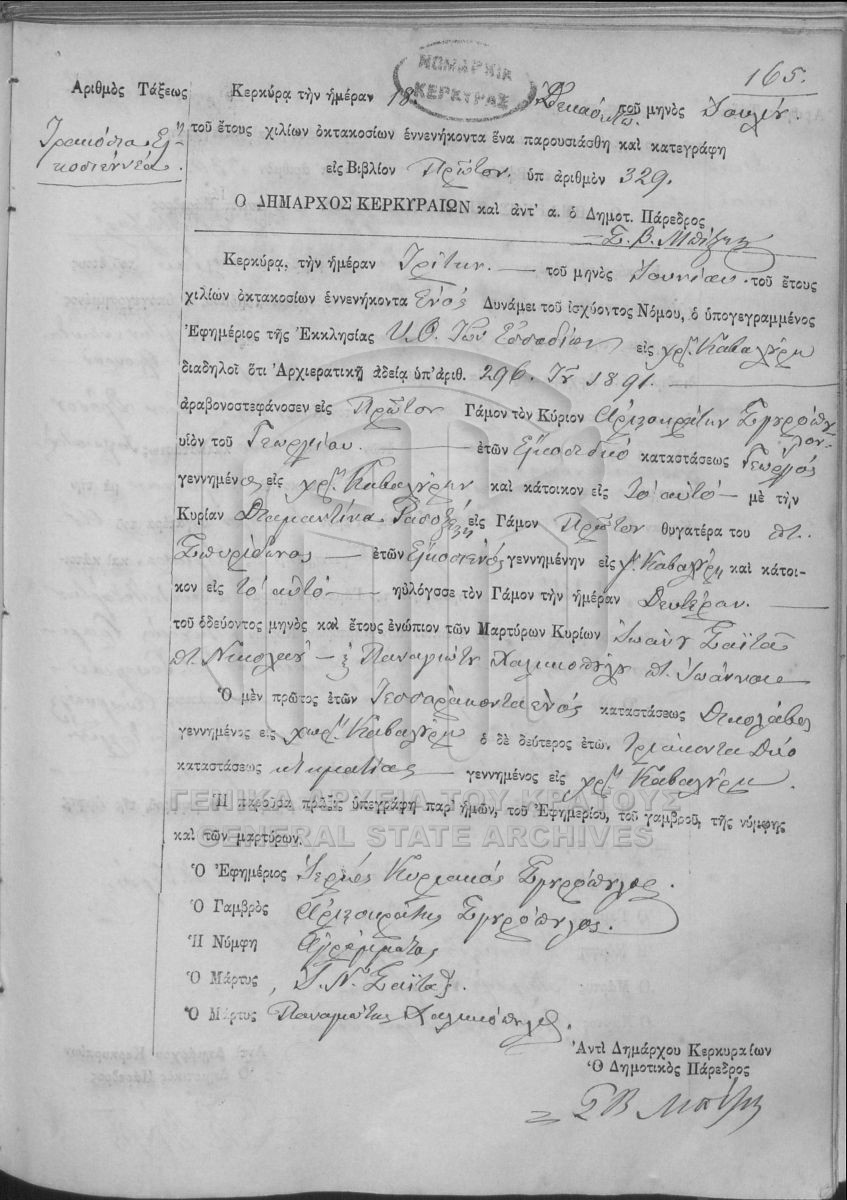 165.
ΝΟΜΑΡΧΙΑ
ΚΕΡΚΥΡΑΣ
Ἀριθμὸς Τάξεως
Τριακόσια Εἰ-
κοσιεννέα.
Κερκύρᾳ τὴν ἡμέραν 18. Δεκαόκτω. τοῦ μηνὸς Ἰουλίου
τοῦ ἔτους χιλίων ὀκτακοσίων ἐννενήκοντα ἕνα παρουσιάσθη καὶ κατεγράφη
εἰς Βιβλίον Πρῶτον. ὑπ ἀριθμὸν 329.
Ὁ ΔΗΜΑΡΧΟΣ ΚΕΡΚΥΡΑΙΩΝ καὶ ἀντ' α. ὁ Δημοτ. Πάρεδρος
Σ. Β. Μπόζης
Κερκύρᾳ, τὴν ἡμέραν Τρίτην. — τοῦ μηνὸς Ἰουνίου. τοῦ ἔτους
χιλίων ὀκτακοσίων ἐννενήκοντα Ἑνός Δυνάμει τοῦ ἰσχύοντος Νόμου, ὁ ὑπογεγραμμένος
Ἐφημέριος τῆς Ἐκκλησίας Υ.Θ. Τῶν εἰς χρ. Καβαλλύρι
διαδηλοῖ ὅτι Ἀρχιερατικῇ ἀδείᾳ ὑπ' ἀριθ. 296. 1891.
ἀραβονοστεφάνοσεν εἰς Πρῶτον Γάμον τὸν Κύριον Ἀριστοκράτην Σγυρόπου
λον.
υἱὸν τοῦ Γεωργίου. — ἐτῶν Εἰκοσιδύο καταστάσεως Γεωργός
γεννημένος εἰς χρ. Καβαλλύρι καὶ κάτοικον εἰς τὸ αὐτό — μὲ τὴν
Κυρίαν Διαμαντίνα εἰς Γάμον Πρῶτον θυγατέρα του πτ.
Σπυρίδωνος — ἐτῶν Εἰκοσιενός γεννημένην εἰς χ. Καβαλλύρι καὶ κάτοι-
κον εἰς τὸ αὐτό — ηὐλόγσσε τὸν Γάμον τὴν ἡμέραν Δευτέραν. —
τοῦ ὁδεύοντος μηνὸς καὶ ἔτους ἐνώπιον τῶν Μαρτύρων Κυρίων Ἰωάννη Σαΐτα
πτ. Νικολάου — κ Παναγιώτη Χαλικιοπούλου πτ. Ἰωάννου
Ὁ μὲν πρῶτος ἐτῶν Τεσσαρακονταενός καταστάσεως
γεννημένος εἰς χωρ. Καβαλλύρι ὁ δὲ δεύτερος ἐτῶν. Τριάκοντα Δύο
καταστάσεως κτηματίας — γεννημένος εἰς χρ. Καβαλλύρι.
ΓΕΝΙΚΑ ΑΡΧΕΙΑ ΤΟΥ ΚΡΑΤΟΥΣ
Ἡ παροῦσα πρᾶξις ὑπεγράφη παρ' ἡμῶν, τοῦ Ἐφημερίου, τοῦ γαμβροῦ, τῆς νύμφης
GENERAL STATE ARCHIVES
καὶ τῶν μαρτύρων.
Ὁ Ἐφημέριος Ἱερεύς Κυριακός Σγυρόπουλος.
Ὁ Γαμβρὸς Ἀριστοκράτης Σγυρόπουλος.
Ἡ Νύμφη Ἀγράμματος
Ὁ Μάρτυς Ι. Ν. Σαΐτας.
Ὁ Μάρτυς Παναγιώτης Χαλικιόπουλος.
Ἀντὶ Δημάρχου Κερκυραίων
Ὁ Δημοτικὸς Πάρεδρος
Σ Β Μπόζης